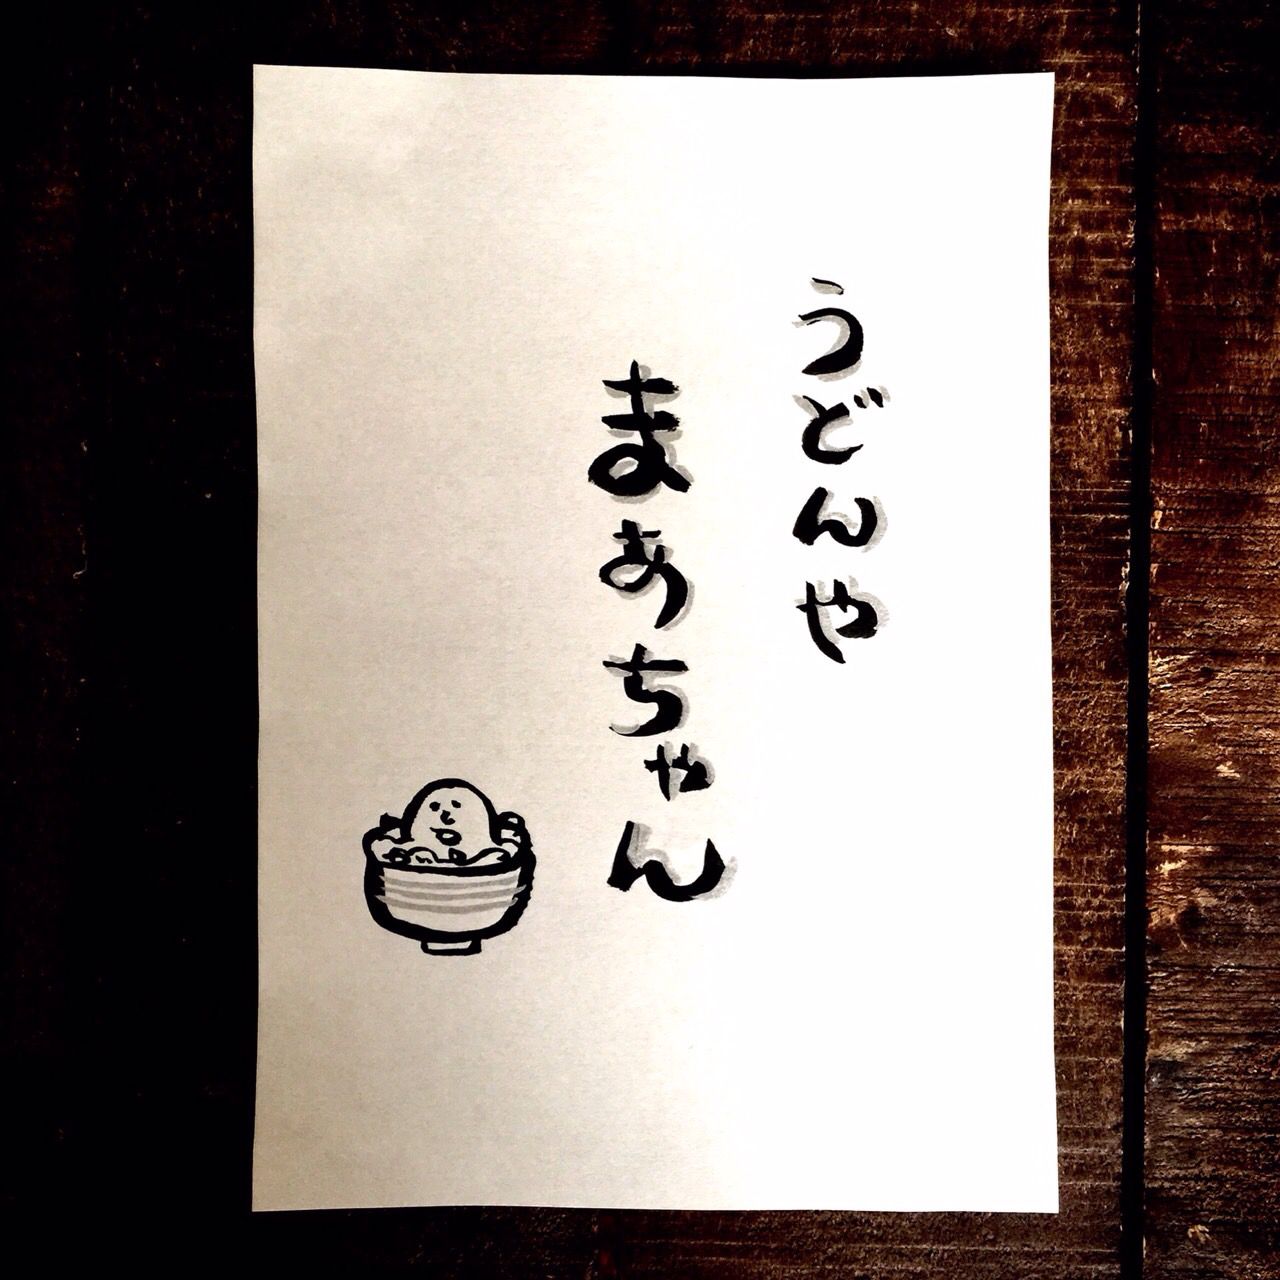 うどんや
まぁちゃん